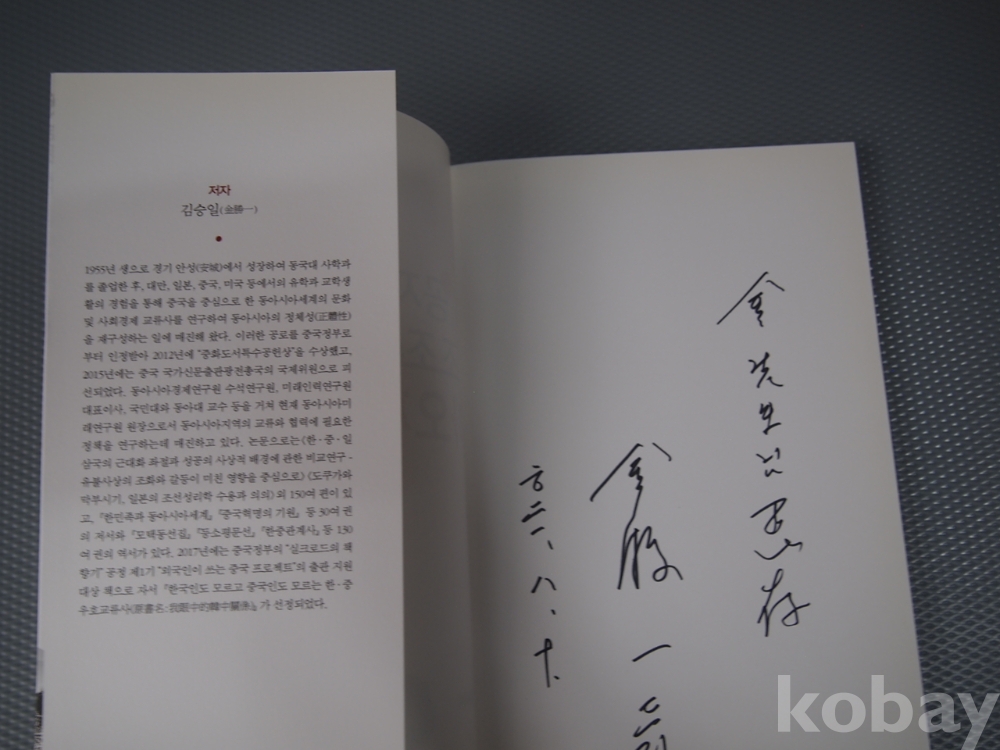 저자
김승일(金勝一)
1955년 생으로 경기 안성(安城)에서 성장하여 동국대 사학과
를 졸업한 후, 대만, 일본, 중국, 미국 등에서의 유학과 교학생
활의 경험을 통해 중국을 중심으로 한 동아시아세계의 문화
및 사회경제 교류사를 연구하여 동아시아의 정체성(正體性)
을 재구성하는 일에 매진해 왔다. 이러한 공로를 중국정부로
부터 인정받아 2012년에 "중화도서특수공헌상"을 수상했고,
2015년에는 중국 국가신문출판광전총국의 국제위원으로 피
선되었다. 동아시아경제연구원 수석연구원, 미래인력연구원
대표이사, 국민대와 동아대 교수 등을 거쳐 현재 동아시아미
래연구원 원장으로서 동아시아지역의 교류와 협력에 필요한
정책을 연구하는데 매진하고 있다. 논문으로는 《한·중·일
삼국의 근대화 좌절과 성공의 사상적 배경에 관한 비교연구-
유불사상의 조화와 갈등이 미친 영향을 중심으로》 《도쿠가와
막부시기, 일본의 조선성리학 수용과 의의》 외 150여 편이 있
고, 『한민족과 동아시아세계』 『중국혁명의 기원』 등 30여 권
의 저서와 『모택동선집』 『등소평문선』 『한중관계사』 등 130
여 권의 역서가 있다. 2017년에는 중국정부의 "실크로드의 책
향기" 공정 제1기 "외국인이 쓰는 중국 프로젝트"의 출판 지원
대상 책으로 자서 『한국인도 모르고 중국인도 모르는 한·중
우호교류사(原書名:我眼中的韓中關係)』가 선정되었다.
金
님 惠存
金勝一
二一、八、十、
kobay